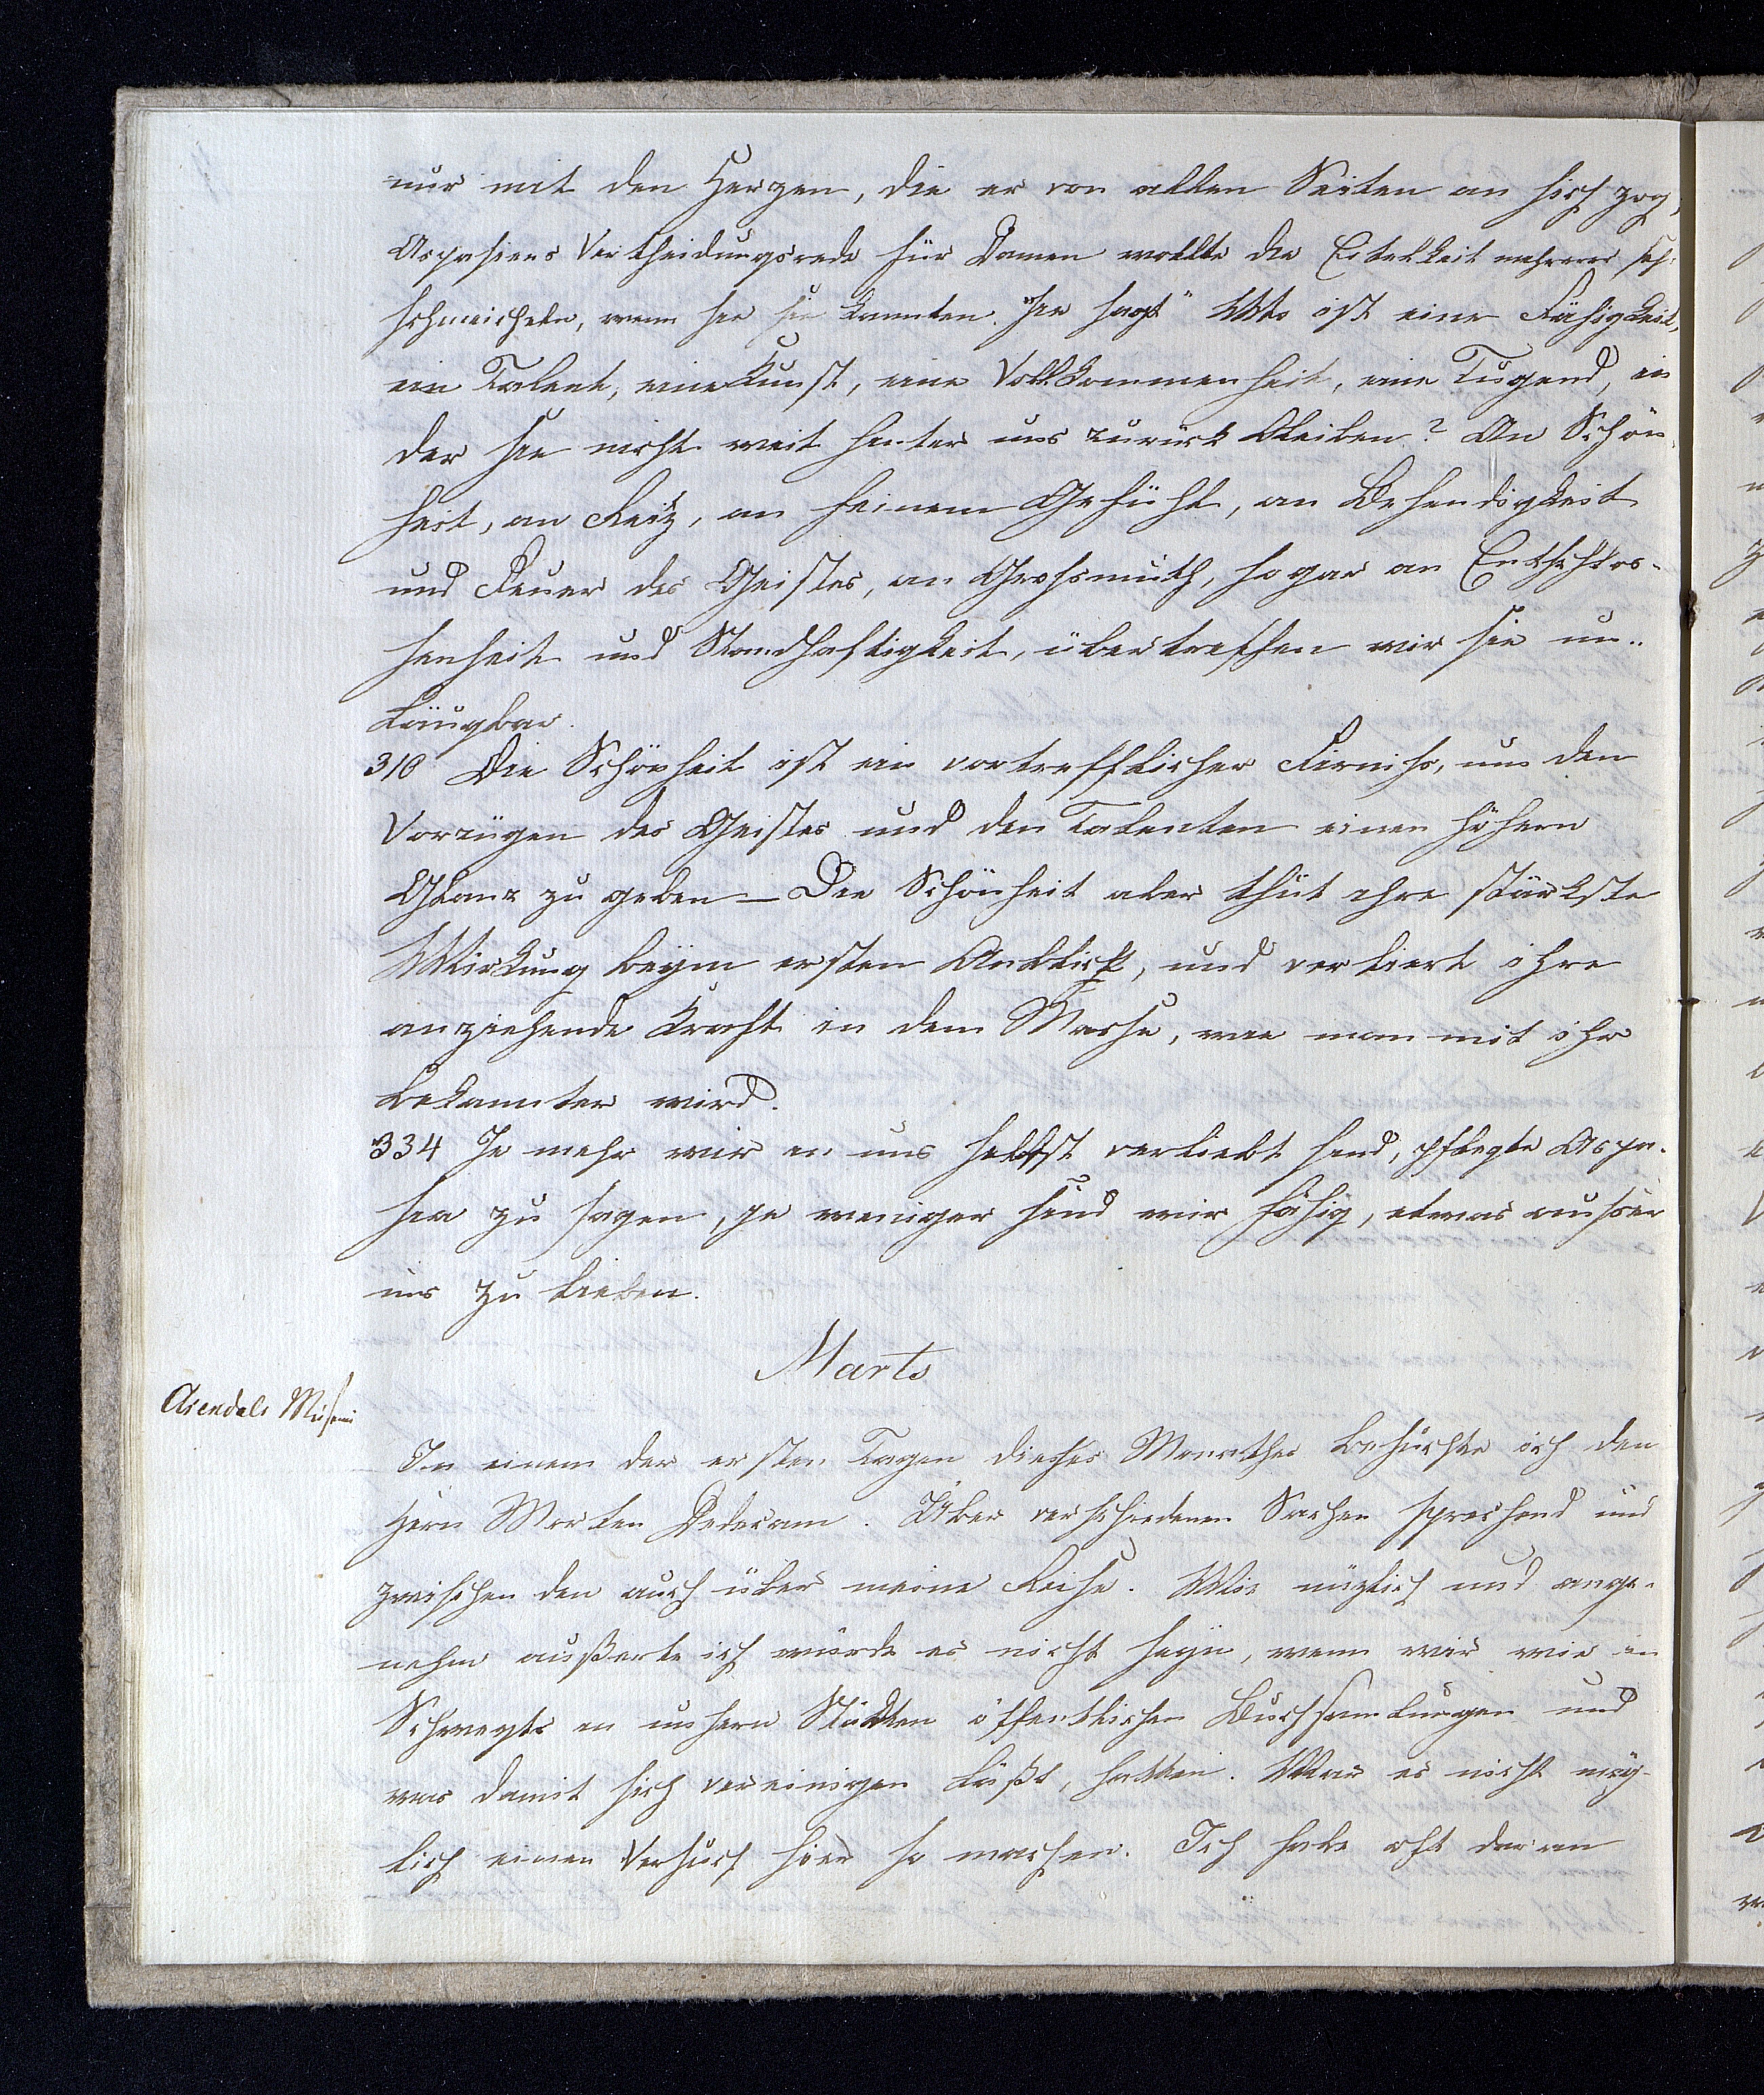 nur mit den Herzen, die er von allen Seiten an sich zog,
Aspasiens Vertheidungsrede für Damen wollte die Eitelkeit mehrerer
schmeicheln, wenn sie sie kannten. Sie sagt "Wo ist eine Fähigkeit,
ein Talent, eine Kunst, eine Vollkommenheit, eine Tugend, in
der sie nicht weit hinter uns zurück bleiben? An Schön-
heit, an Reitz, an feinem Gefühl, an Behendigkeit
und Feuer des Geistes, an Grossmuth, sogar an Entschlos-
senheit und Standhaftigkeit, übertreffen wir sie un-
läugbar.
310 Die Schönheit ist ein vortrefflicher Firniss, um den
Vorzügen des Geistes und den Talenten einen höhern
Glanz zu geben — Die Schönheit aber thut ihre stärkste
Wirkung beym ersten Anblick, und verliert ihre
anziehende Kraft in dem Masse, wie man mit ihr
bekannter wird.
334 Je mehr wir in uns selbst verliebt sind, pflegte Aspa-
sia zu sagen, je weniger sind wir fähig, etwas ausser
uns zu lieben.
Marts
Arendals Museum
In einem der ersten Tagen dieses Monathes besuchte ich den
Herrn Morten Dedecam. Über verschiedenen Sachen sprechend und
zwischen den auch über meine Reise. Wie nüzlich und ange-
nehm außerte ich würde es nicht seyn, wenn wir wie in
Schwegts in unsern Städten öffentlichen Buchsamlungen und
was damit sich vereinigen läßt, hatten. War es nicht mög-
lich einen Versuch hier so machen. Ich habe oft daran